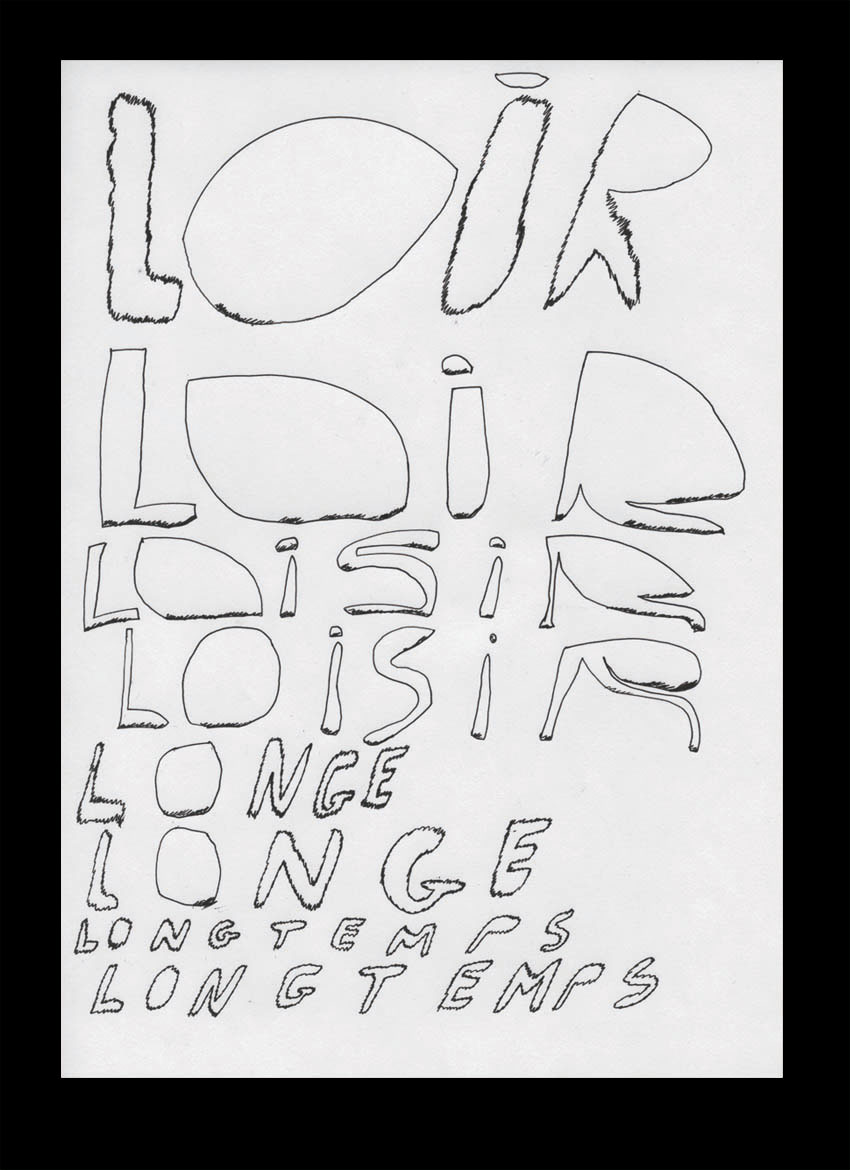 LOiR
LOiR
LOiSiR
LOiSiR
LONGE
LONGE
LONGTEMPS
LONGTEMPS